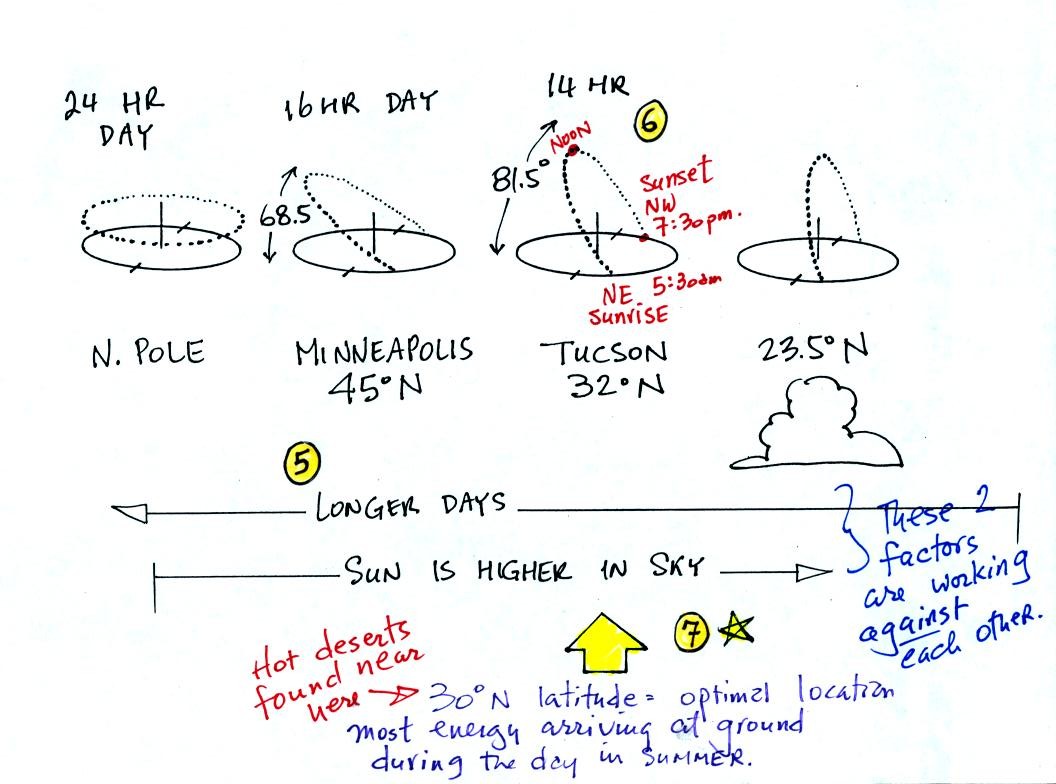 24 HR
DAY
16 HR DAY
14 HR
6
NOON
81.5°
68.5
Sunset
NW
7:30pm.
NE 5:30am
SunrisE
N. POLE
MINNEAPOLIS
45°N
TUCSON
32°N
23.5°N
5
LONGER DAYS
SUN IS HIGHER IN SKY
These 2
factors
are working
against
each other.
7
Hot deserts
found near
here
30°N latitude = optimal location
most energy arriving at ground
during the day in SUMMER.